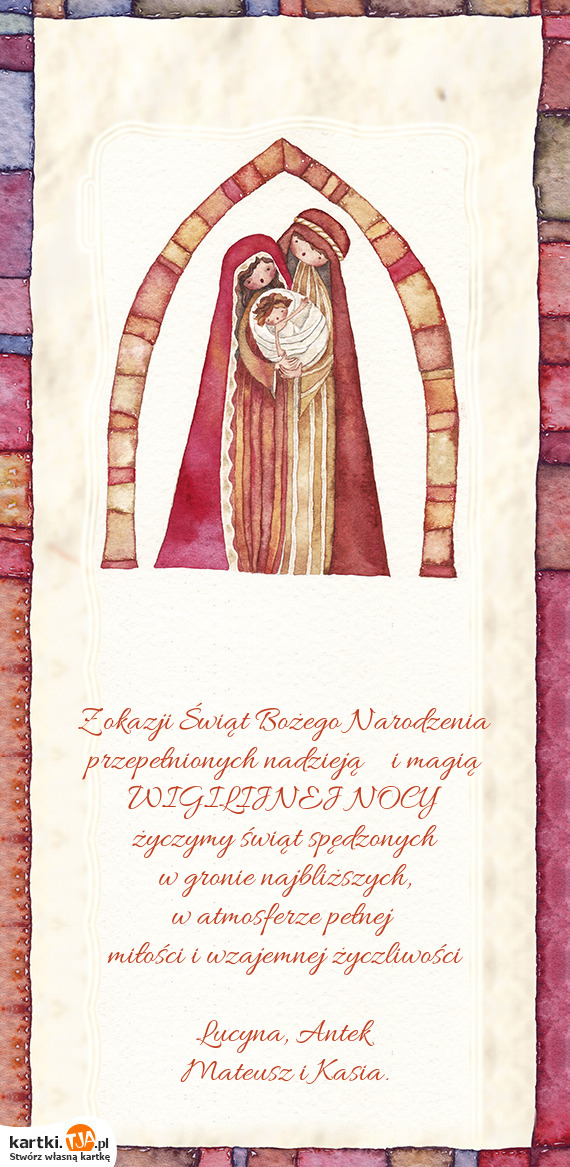 Z okazji Świąt Bożego Narodzenia
przepełnionych nadzieją i magią
WIGILIJNEJ NOCY
życzymy świąt spędzonych
w gronie najbliższych,
w atmosferze pełnej
miłości i wzajemnej życzliwości
Lucyna, Antek
Mateusz i Kasia.
kartki.TJA.pl
Stwórz własną kartkę